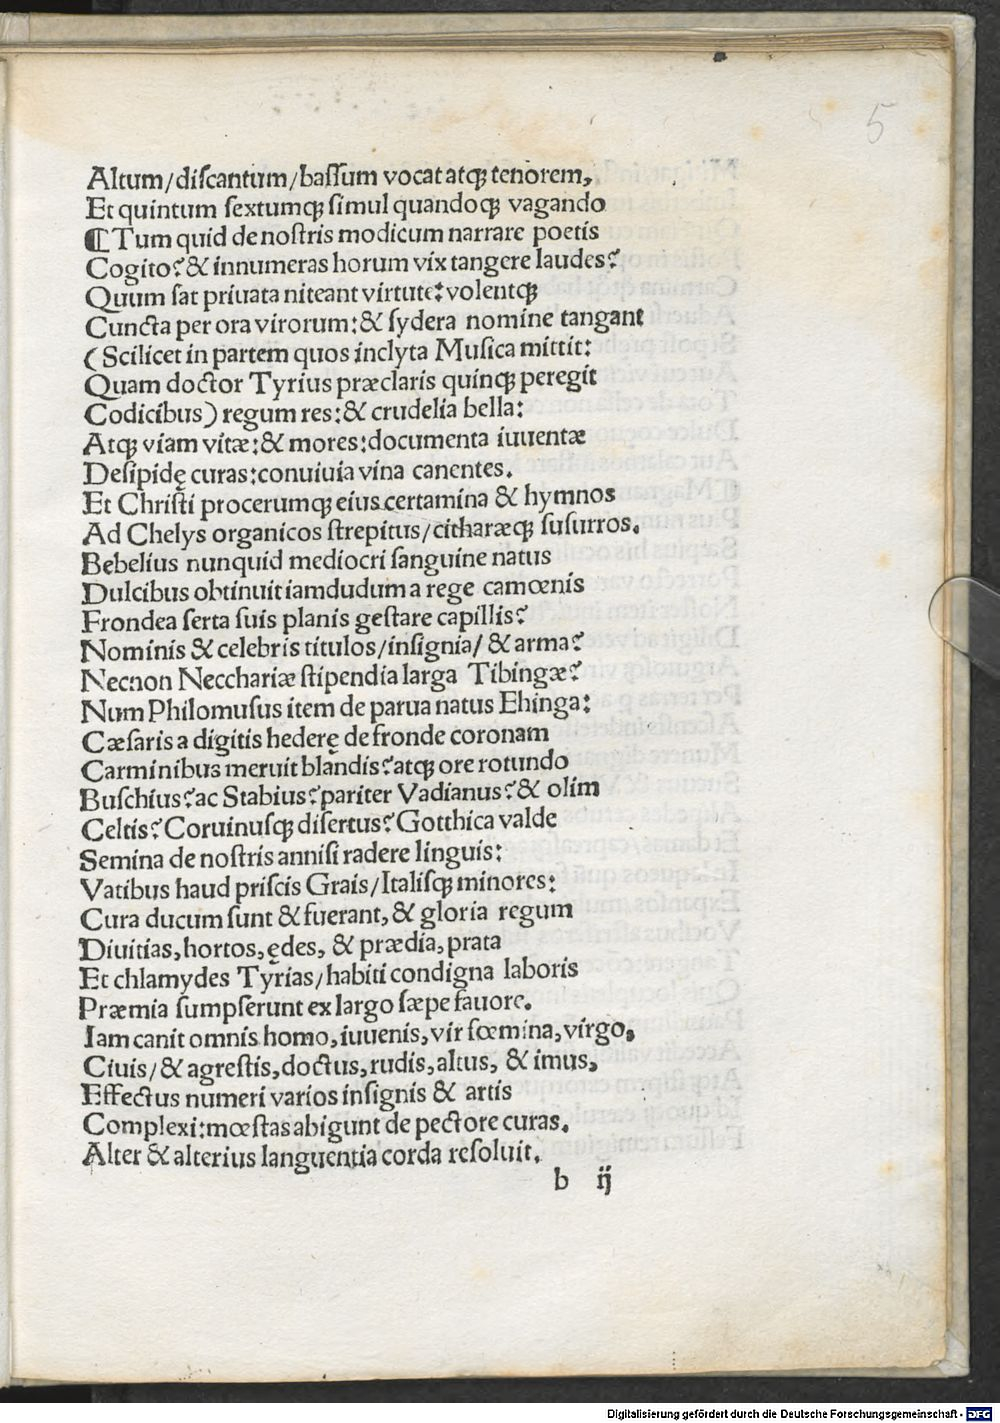 5
Altum/discantum/bassum vocat atqꝫ tenorem,
Et quintum sextumqꝫ simul quandoqꝫ vagando
¶ Tum quid de nostris modicum narrare poetis
Cogito? & innumeras horum vix tangere laudes?
Quum sat priuata niteant virtute: volentqꝫ
Cuncta per ora virorum: & sydera nomine tangant
(Scilicet in partem quos inclyta Musica mittit:
Quam doctor Tyrius præclaris quinqꝫ peregit
Codicibus) regum res: & crudelia bella:
Atqꝫ viam vitæ: & mores: documenta iuuentæ
Desipidę curas: conuiuia vina canentes.
Et Christi procerumqꝫ eius certamina & hymnos
Ad Chelys organicos strepitus/citharæqꝫ susurros.
Bebelius nunquid mediocri sanguine natus
Dulcibus obtinuit iamdudum a rege camœnis
Frondea serta suis planis gestare capillis?
Nominis & celebris titulos/insignia/& arma?
Necnon Necchariæ stipendia larga Tibingæ?
Num Philomusus item de parua natus Ehinga:
Cæsaris a digitis hederę de fronde coronam
Carminibus meruit blandis? atqꝫ ore rotundo
Buschius? ac Stabius? pariter Vadianus? & olim
Celtis? Coruinusqꝫ disertus? Gotthica valde
Semina de nostris annisi radere linguis:
Vatibus haud priscis Grais/Italisqꝫ minores:
Cura ducum sunt & fuerant, & gloria regum
Diuitias, hortos, ędes, & prædia, prata
Et chlamydes Tyrias/habiti condigna laboris
Præmia sumpserunt ex largo sæpe fauore.
Iam canit omnis homo, iuuenis, vir fœmina, virgo,
Ciuis/& agrestis, doctus, rudis, altus, & imus,
Effectus numeri varios insignis & artis
Complexi: mœstas abigunt de pectore curas.
Alter & alterius languentia corda resoluit.
b ij
Digitalisierung gefördert durch die Deutsche Forschungsgemeinschaft - DFG